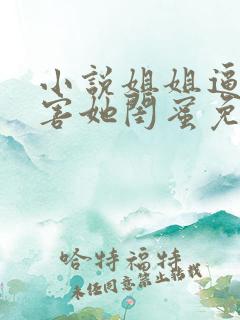 小說姐姐逼
害她閨蜜免
哈特福特
未任同意禁止转载